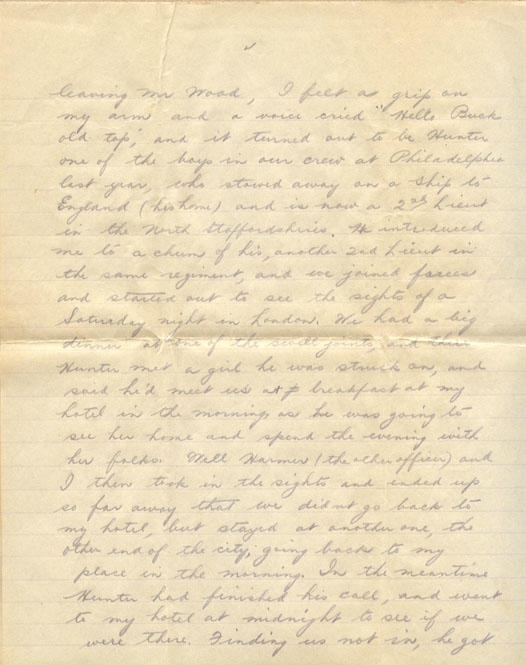 leaving Mr Wood, I felt a grip on
my arm and a voice cried "Hello Buck
old top," and it turned out to be Hunter
one of the boys in our crew at Philadelphia
last year, who stowed away on a ship to
England (his home) and is now a 2nd Lieut
in the North Staffordshires. He introduced
me to a chum of his, another 2nd Lieut in
the same regiment, and we joined forces
and started out to see the sights of a
Saturday night in London. We had a big
dinner at one of the swell joints, and there
Hunter met a girl he was struck on, and
said he'd meet us at breakfast at my
hotel in the morning as he was going to
see her home and spend the evening with
her folks. Well Harmer (the other officer) and
I then took in the sights and ended up
so far away that we did not go back to
my hotel, but stayed at another one, the
other end of the city, going back to my
place in the morning. In the meantime
Hunter had finished his call, and went
to my hotel at midnight to see if we
were there. Finding us not in, he got